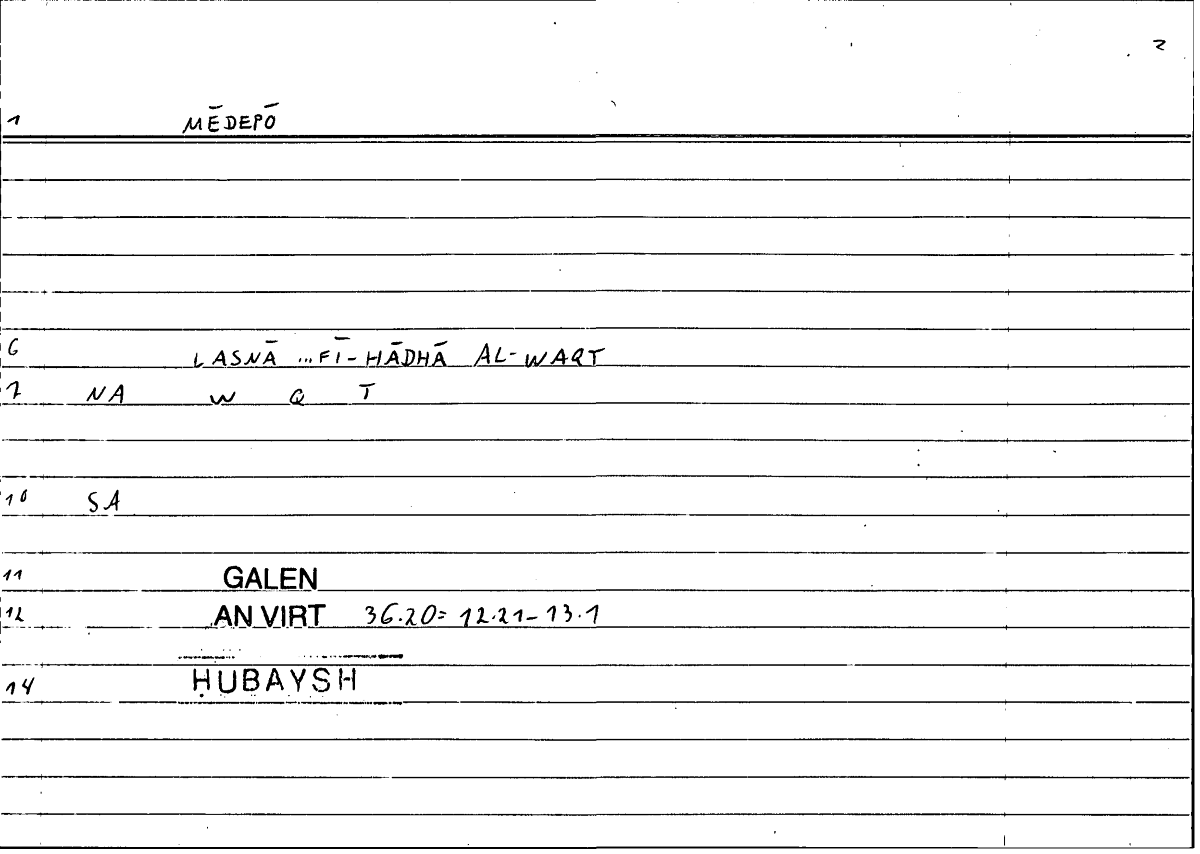 2
1 MĒDEPŌ
6 LASNĀ ... FĪ-HĀDHĀ AL-WAQT
7 NA W Q T
10 SA
11 GALEN
12 AN VIRT 36.20= 12.21-13.1
14 ḤUBAYSH